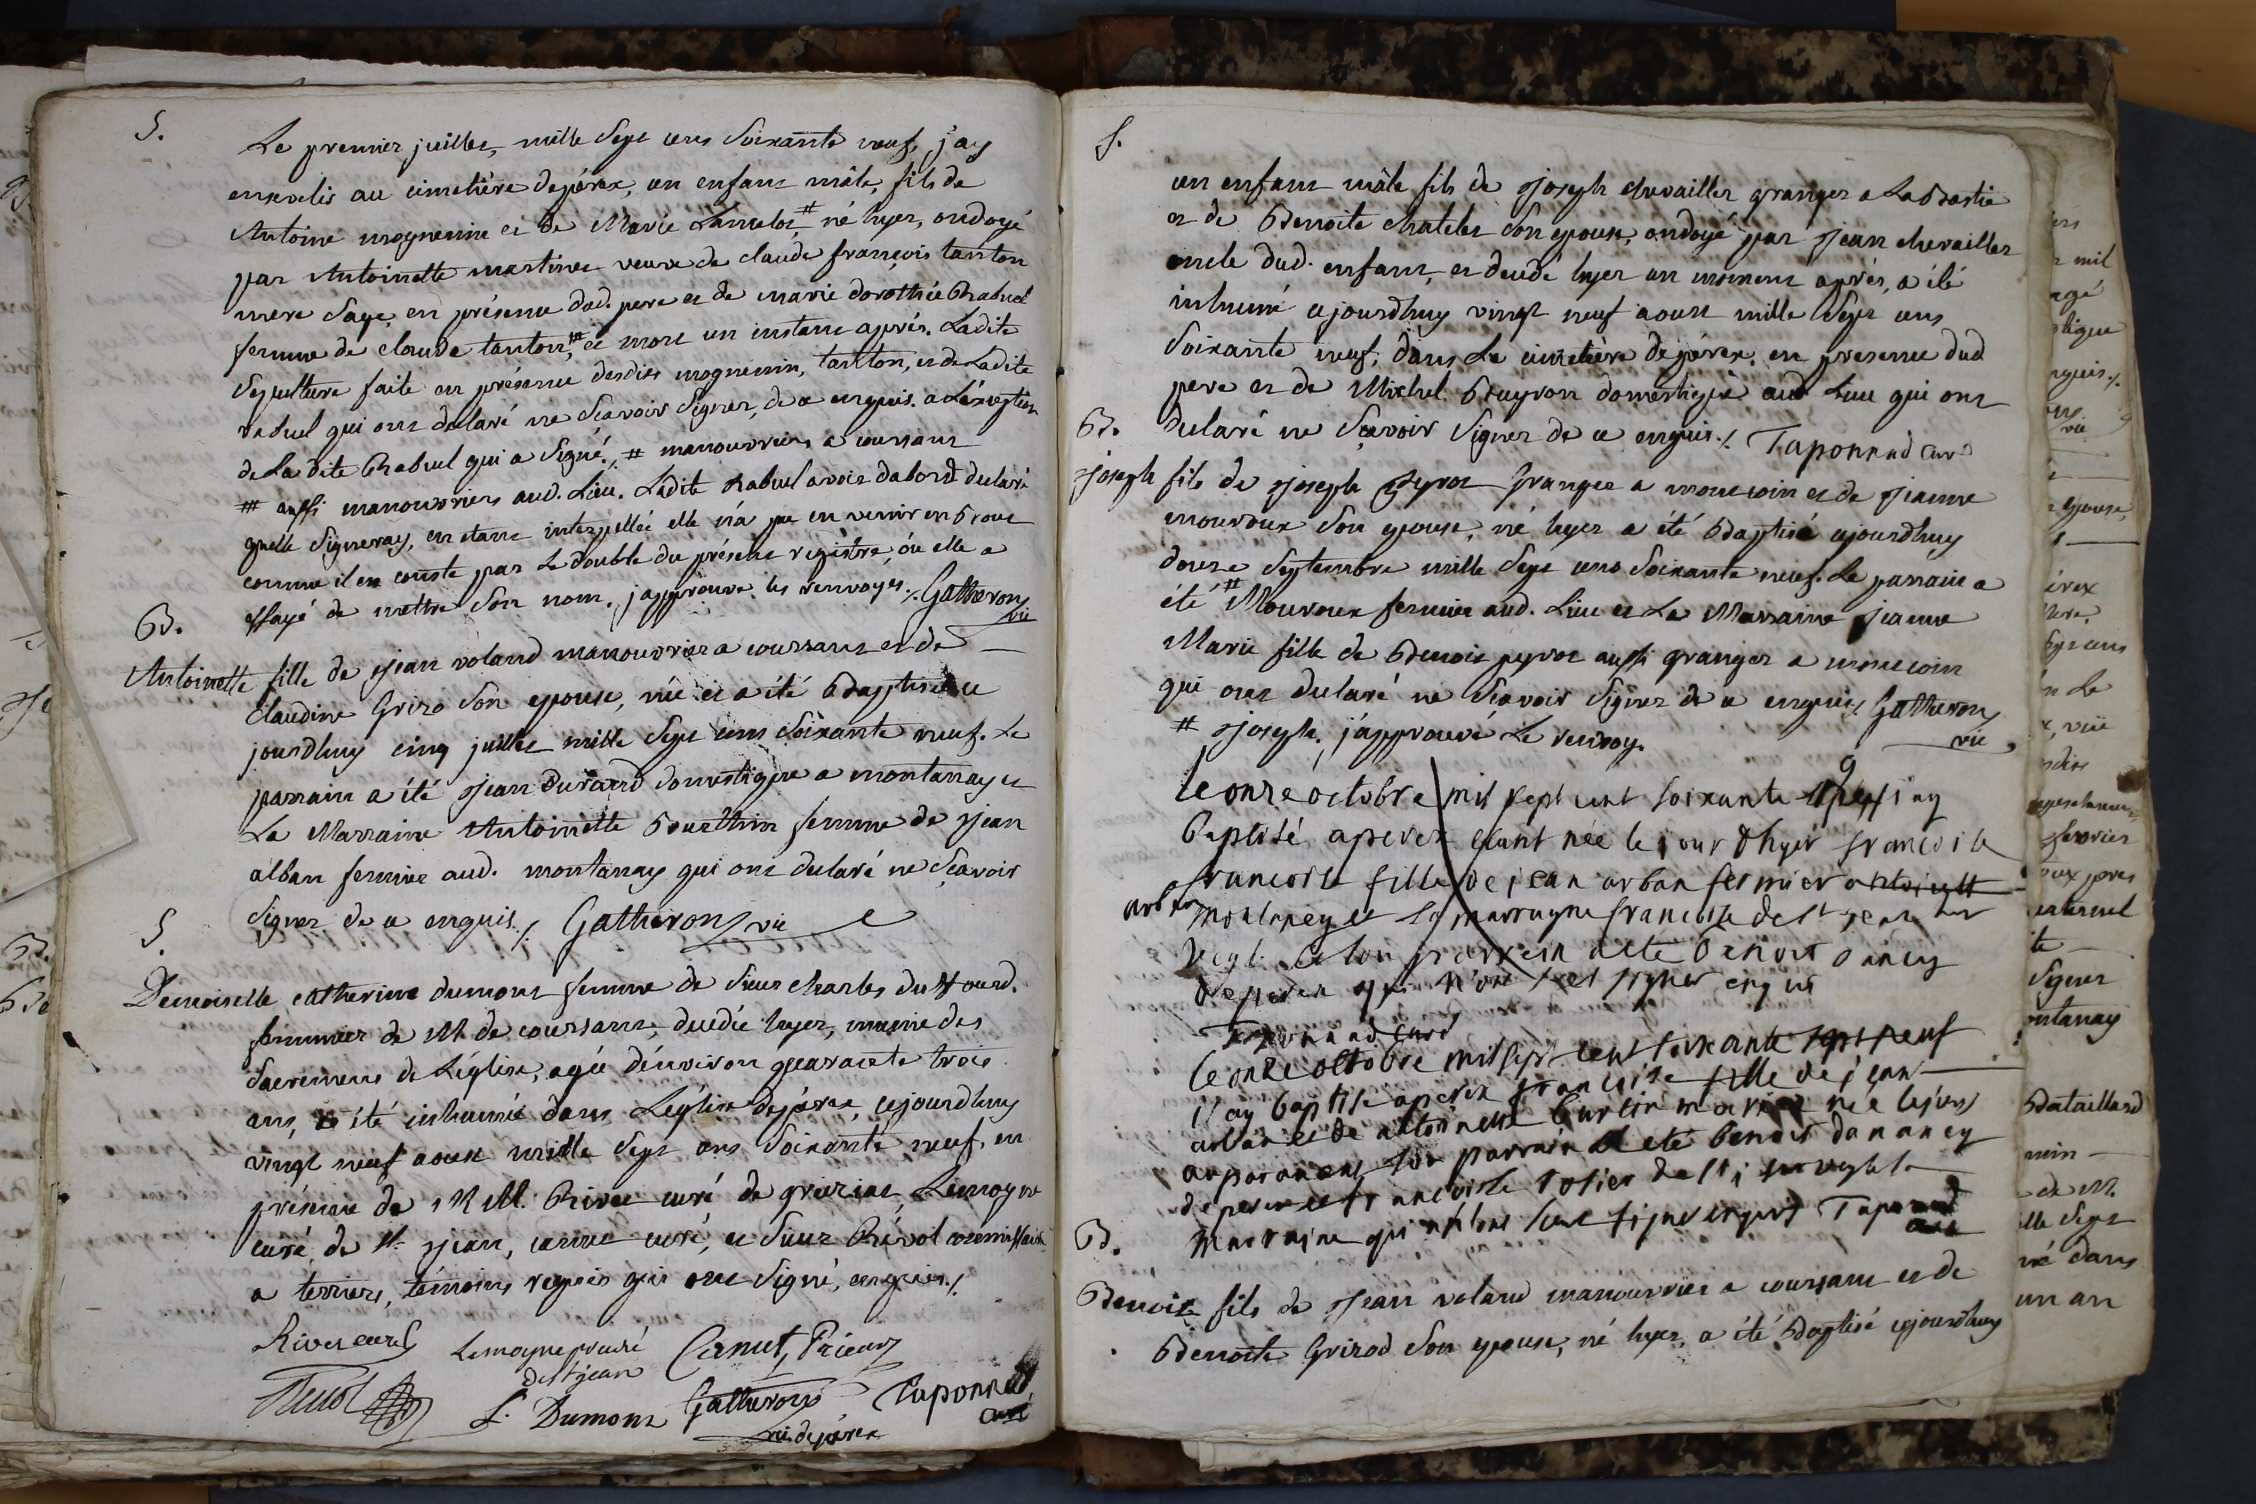 S.
Le premier juillet, mille Sept cens Soixante neuf, j'ay
ensevelis au cimetière depérex, un enfant mâle, fils de
Antoine mognenin et de Marie Lamelot # né hyer, ondoyé
par Antoinette martinet veuve de claude françois tanton
mere Sage, en présence dud. pere et de marie dorothée Rabuel
femme de claude tanton, ## et mort un instant aprés. Ladite
Sepulture faite en présence desdits mognenin, tantton, et de Ladite
rabuel qui ont declaré ne Sçavoir Signer, de ce enquis. a L'éxception
de La dite Rabuel qui a Signé./. # manouvriers a coursant
## aussi manouvriers aud. Lieu. Ladite Rabuel avoit dabord declaré
quelle Signeray, en étant interpellée elle n'a pu en venir en bout
comme il en conste par Le double du présent registre, où elle a
essayé de mettre Son nom. j'approuve les renvoyés ./. Gatheron
vic
B.
Antoinette fille de Jean voland manouvrier a coursant et de
Claudine Grizo Son epouse, née et a été Baptisée ce
jourdhuy cinq juillet mille Sept cens Soixante neuf. Le
parrain a été Jean Durand domestique a montanay et
La Marraine Antoinette Bourthin femme de Jean
alban fermier aud. montanay qui ont declaré ne Sçavoir
Signer de ce enquis./. Gatheron vic
S.
Demoiselle catherine dumont femme de Sieur charles du
fermier de M de coursant, decedée hyer, munie des
Sacremens de L'église, agée d'environ quarante trois
ans, a été inhumée dans L'église depérex, cejourdhuy
vingt neuf aoust mille Sept cens Soixante neuf, en
présence de M M. Rivet curé de grieriat, Lemoyne
curé de St. Jean, canut curé, et Sieur Révol commissaire
a terriers, témoins requis qui ont Signé, enquis./.
Rivet curé Lemoyne curé Canut, Prieur
de St jean
Revol L. Dumont Gatheron Taponnad
vic. depérex curé
S.
un enfant mâle fils de Joseph chevaillier granger a LaBastie
et de Benoite chatelet Son epouse, ondoyé par Jean chevaillier
oncle dud. enfant, et decedé hyer un moment aprés, a été
inhumé cejourdhuy vingt neuf aoust mille Sept cens
Soixante neuf, dans Le cimetière depérex, en presence dud
pere et de Michel Peuyron domestique aud Lieu qui ont
declaré ne Sçavoir Signer de ce enquis./. Taponnad curé
B.
Joseph fils de Joseph Peyrot Granger a moncoin et de Jeanne
mouroux Son epouse, né hyer a été Baptisé cejourdhuy
douze Septembre mille Sept cens Soixante neuf. Le parrain a
été # Mouroux fermier aud. Lieu et La Marraine Jeanne
Marie fille de Benoit peyrot aussi granger a moncoin
qui ont declaré ne Sçavoir Signer de ce enquis Gatheron
# Joseph. j'approuve Le renvoy. vic
le onze octobre mil sept cent soixante 9 jay
baptisé aperex etant née le jour dhyer francoise
francoise fille de jean arban fermier a
arban montaney et la marrayne francoise de St jean sur
veyl. et son parrein a ete Benoit danancy
de perex qui n'ont scet signer enquis
Taponnad curé
le onze octobre mil sept cent soixante neuf
j'ay baptise aperex francoise fille de jean
arban et de antoinette burtin mariez née le jour
auparavent son parrain a eté benoit dananey
de perex et francoise de St j sur veyle la
marraine qui n'ont scet signer enquis Taponnad
curé
B.
Benoit fils de Jean voland manouvrier a coursant et de
Benoite Grizod Son epouse, né hyer, a été Baptisé cejourdhuy
mil
agé
Bataillard
Signer
ontanay
né dans
un an